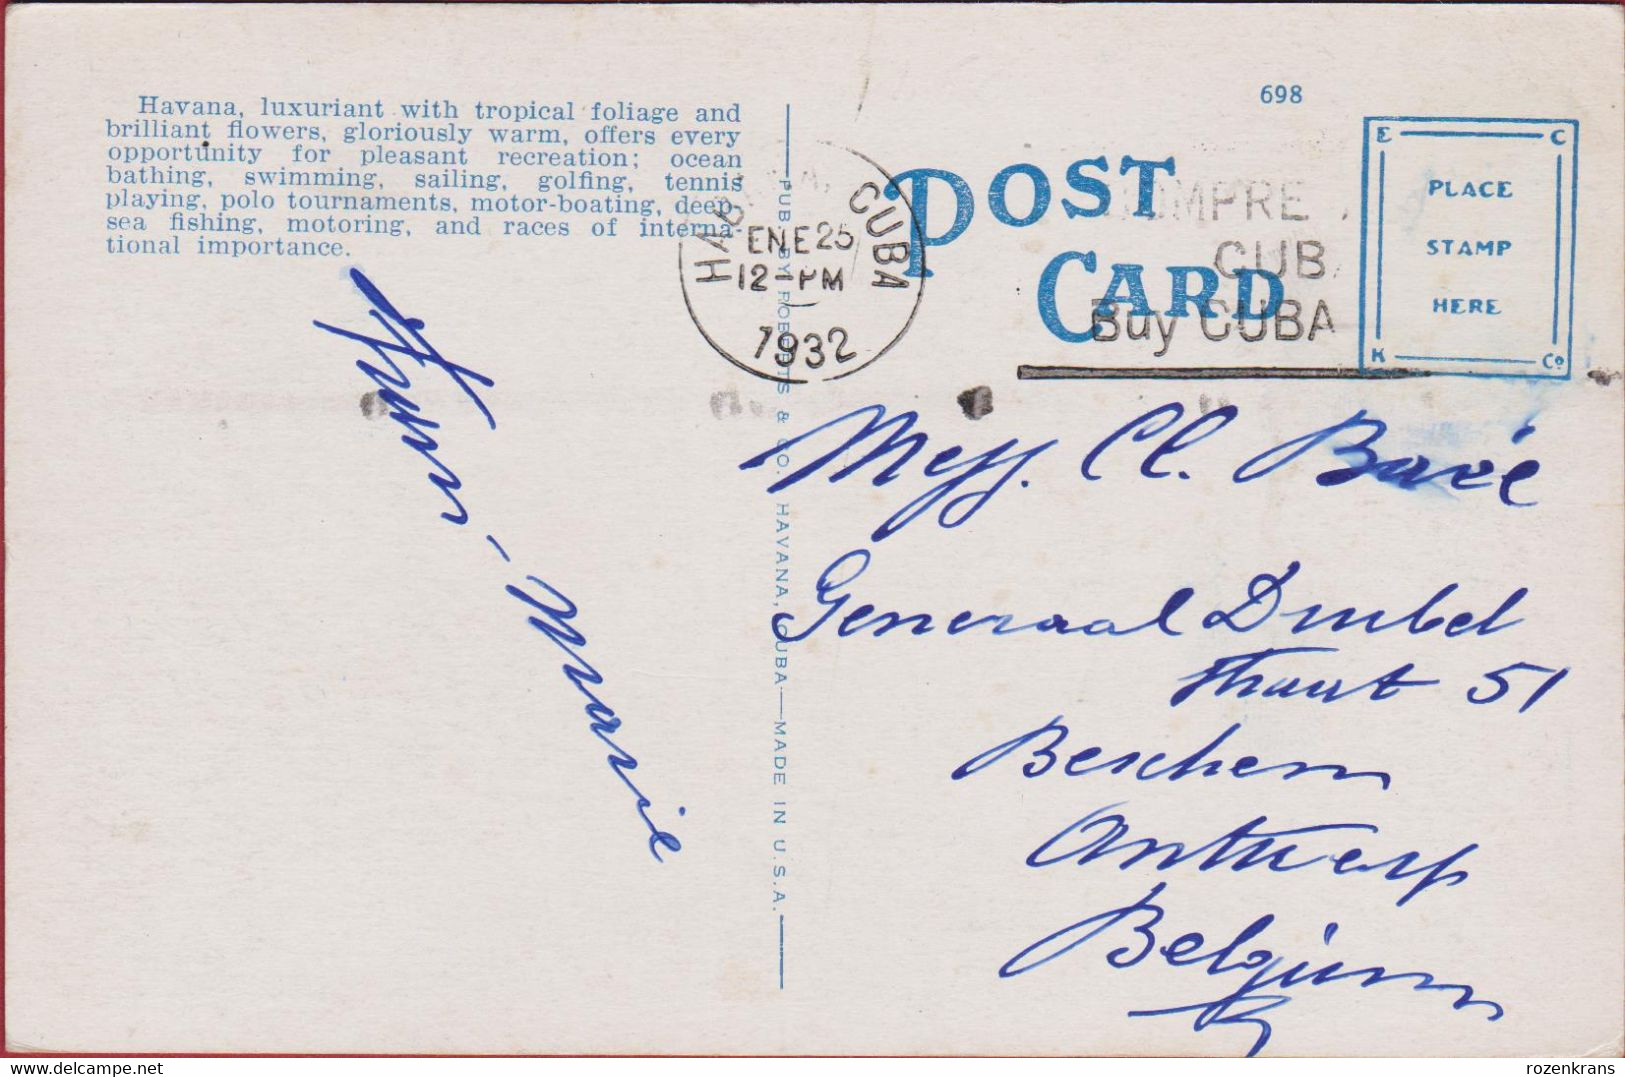 Havana, luxuriant with tropical foliage and
brilliant flowers, gloriously warm, offers every
opportunity for pleasant recreation; ocean
bathing, swimming, sailing, golfing, tennis
playing, polo tournaments, motor-boating, deep-
sea fishing, motoring, and races of interna-
tional importance.
698
POST
CARD
E C
PLACE
STAMP
HERE
K Co
HABANA, CUBA
ENE 25
12-PM
1932
COMPRE
CUB
Buy CUBA
PUB. BY ROBERTS & CO. HAVANA, CUBA—MADE IN U.S.A.
- Marie
Cl.
Generaal Drubel
straat 51
Berchem
Antwerp
Belgium
rozenkrans